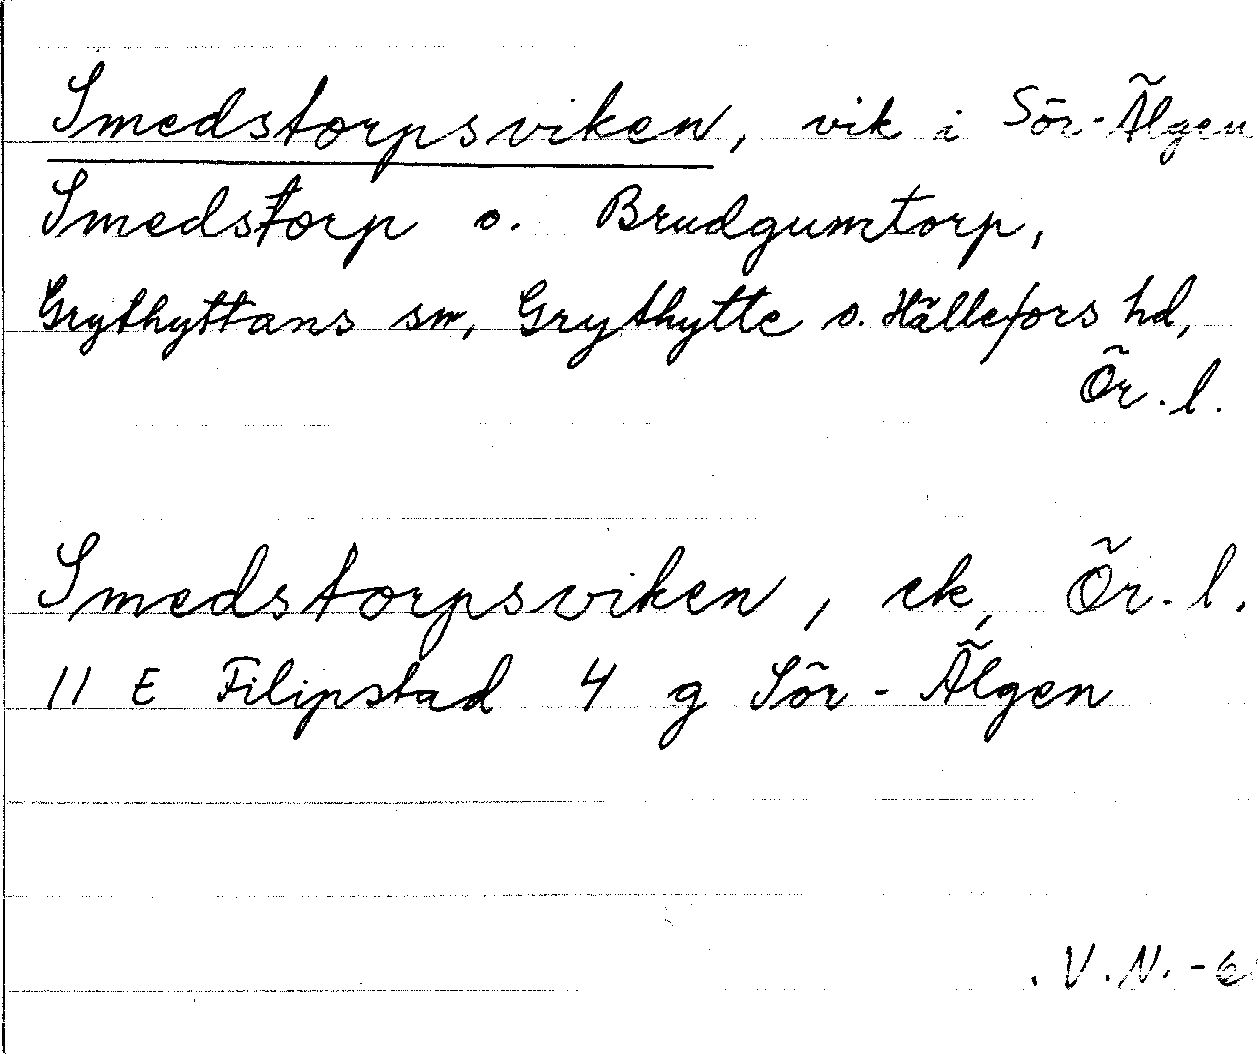 Smedstorpsviken, vik i Sör-Älgen
Smedstorp o. Brudgumtorp,
Grythyttans sn, Grythytte o. Hällefors hd,
Ör. l.
Smedstorpsviken, ek, Ör. l.
11 E Filipstad 4 g Sör-Älgen
V.N. -6